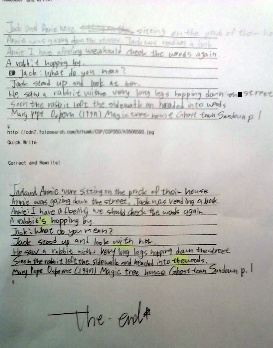 Jack and Annie sitting on the porch of their house
Annie was gazing down the street. Jack was reading a
Annie: I have a feeling we should check the woods again
A rabbit hopping by.
Jack: What do you mean?
Jack stand up and look as her.
He saw a rabbit with very long legs hopping down the street
Soon the rabbit left the sidewalk and headed into woods
Mary Pope Osborne (1999) Magic tree house Ghost town Sundown p. 1
Quick Write
Correct and Rewrite!
Jack and Annie were sitting in the porch of their house
Annie was gazing down the street. Jack was reading a book
Annie: I have a feeling we should check the woods again
A rabbit's hopping by
Jack: What do you mean?
Jack stood up and look with her
He saw a rabbit with very long legs hopping down the street
Soon the rabbit left the sidewalk and headed into the woods.
Mary Pope Osborne (1999) Magic tree house Ghost town Sundown p. 1
The end